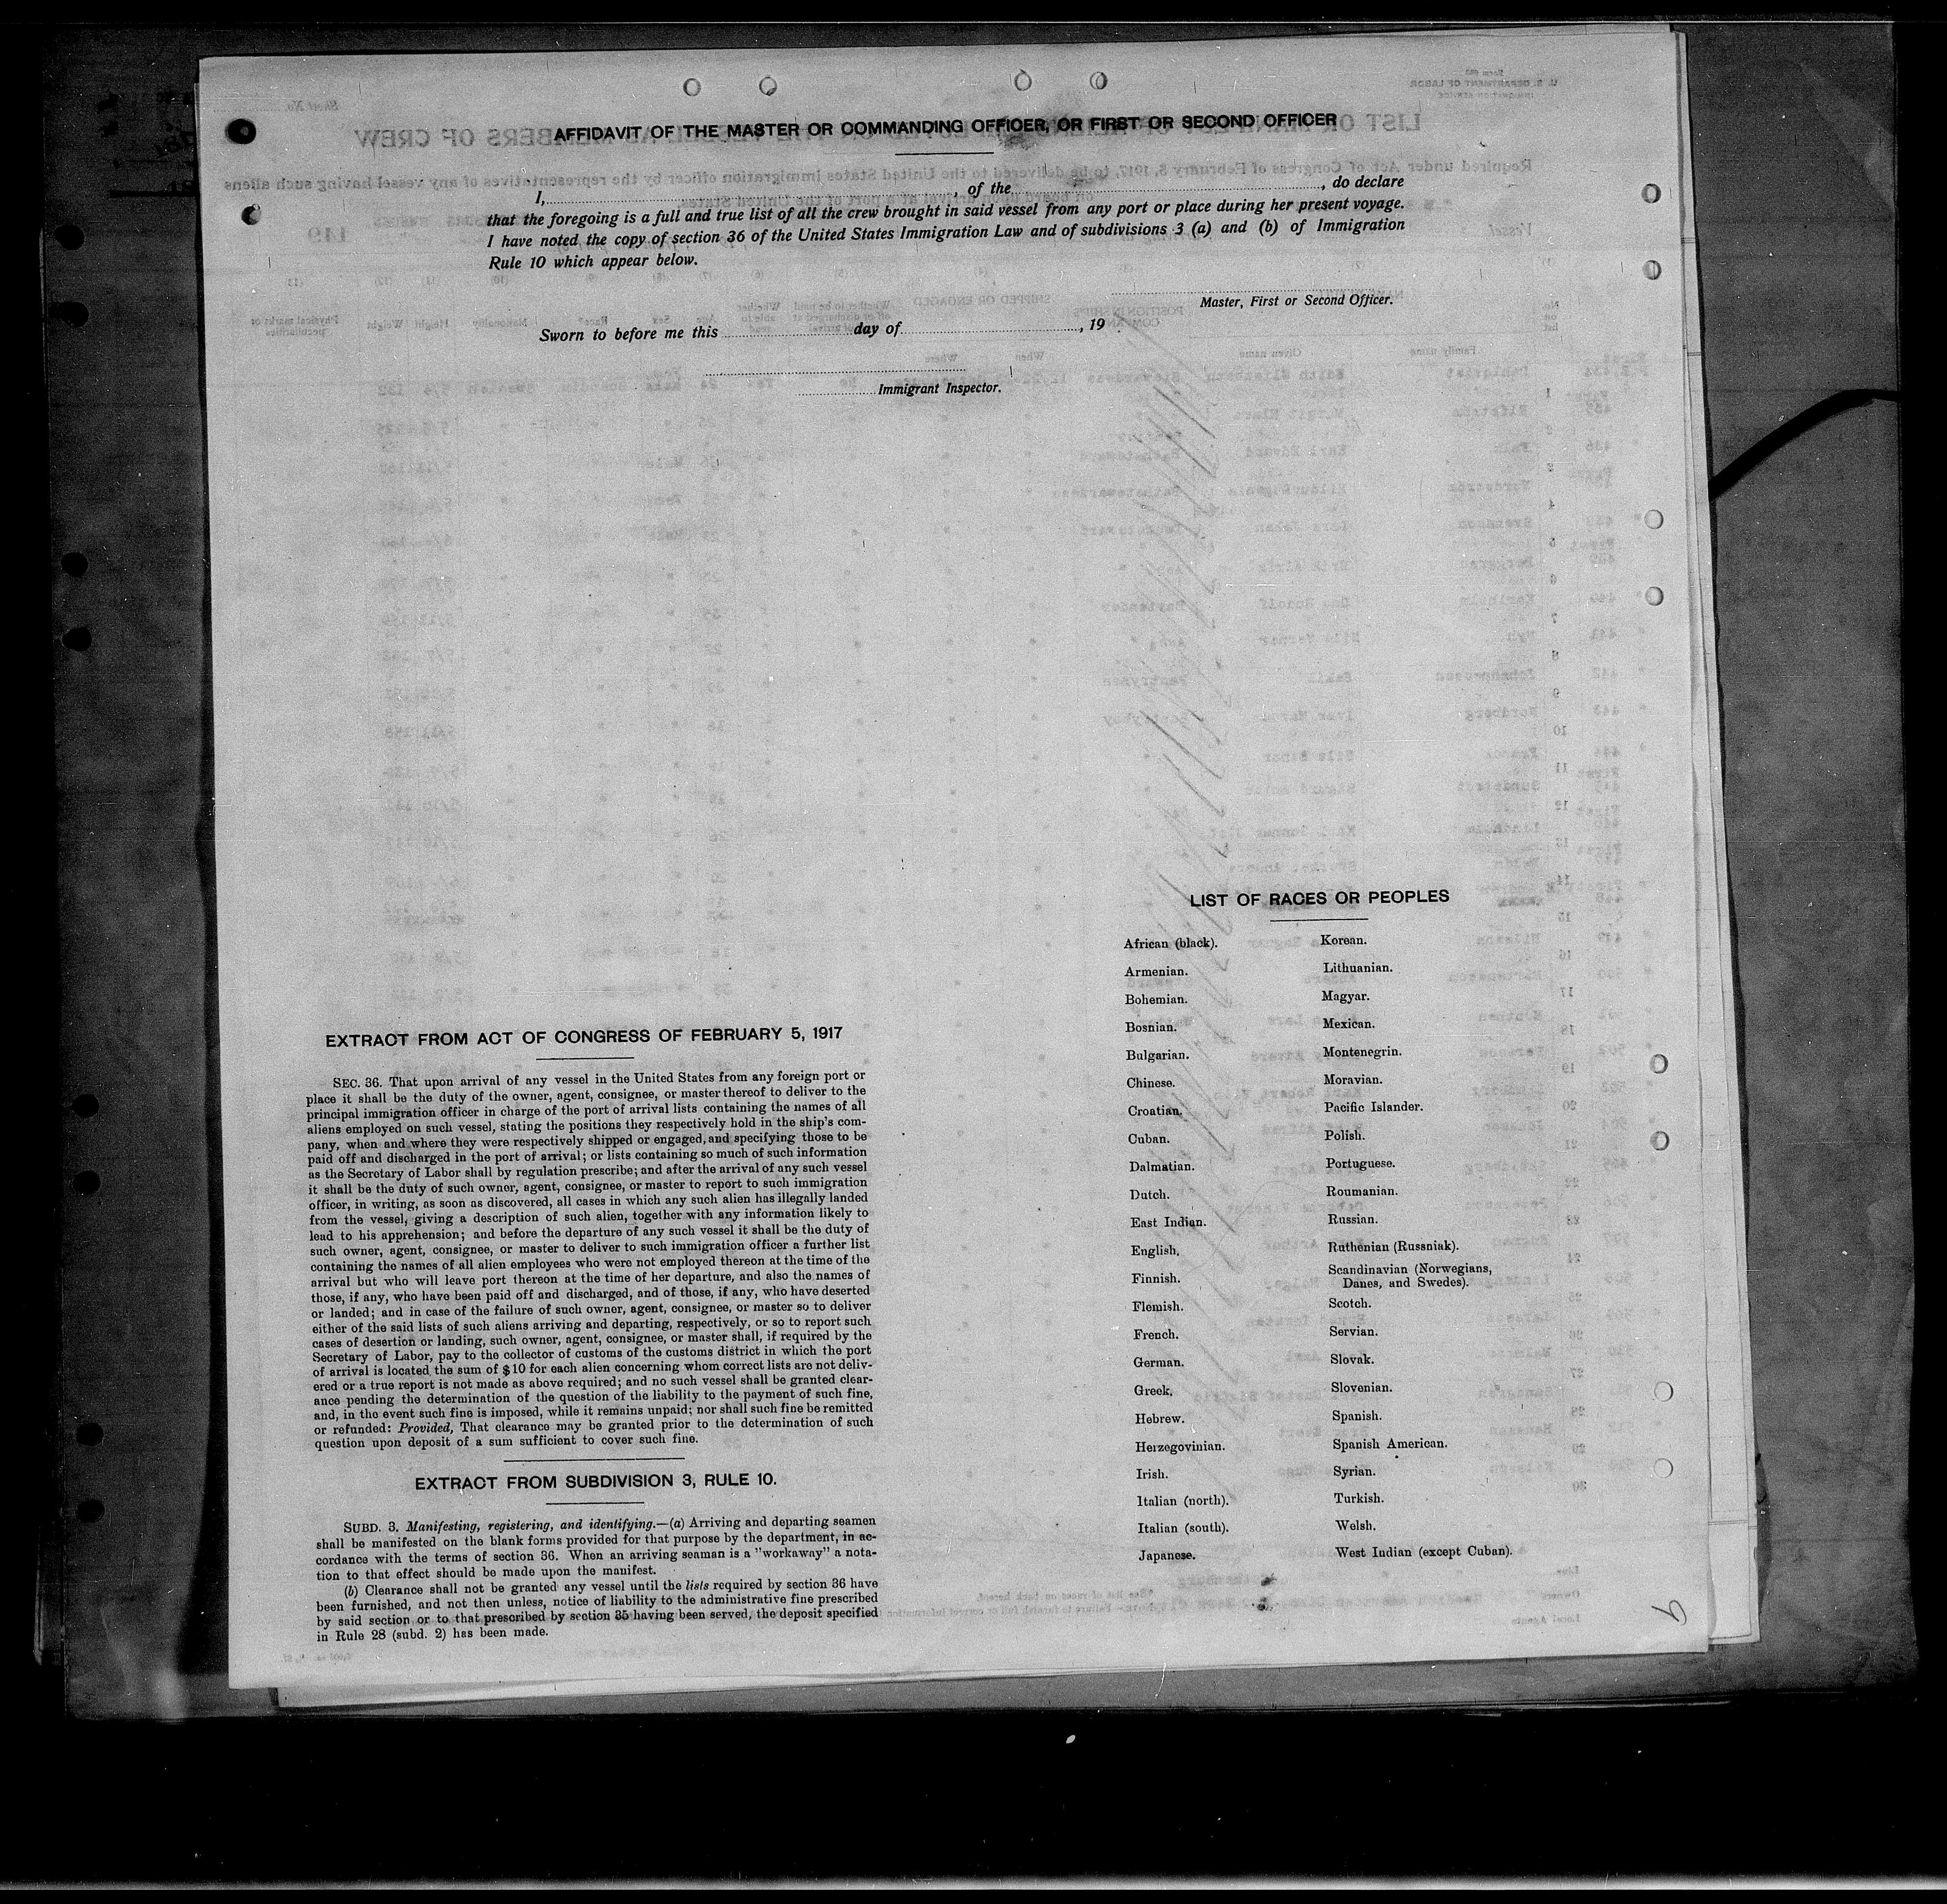 AFFIDAVIT OF THE MASTER OR COMMANDING OFFICER, OR FIRST OR SECOND OFFICER
I, , of the , do declare
that the foregoing is a full and true list of all the crew brought in said vessel from any port or place during her present voyage.
I have noted the copy of section 36 of the United States Immigration Law and of subdivisions 3 (a) and (b) of Immigration
Rule 10 which appear below.
Master, First or Second Officer.
Sworn to before me this day of , 19 .
Immigrant Inspector.
EXTRACT FROM ACT OF CONGRESS OF FEBRUARY 5, 1917
SEC. 36. That upon arrival of any vessel in the United States from any foreign port or
place it shall be the duty of the owner, agent, consignee, or master thereof to deliver to the
principal immigration officer in charge of the port of arrival lists containing the names of all
aliens employed on such vessel, stating the positions they respectively hold in the ship's com-
pany, when and where they were respectively shipped or engaged, and specifying those to be
paid off and discharged in the port of arrival; or lists containing so much of such information
as the Secretary of Labor shall by regulation prescribe; and after the arrival of any such vessel
it shall be the duty of such owner, agent, consignee, or master to report to such immigration
officer, in writing, as soon as discovered, all cases in which any such alien has illegally landed
from the vessel, giving a description of such alien, together with any information likely to
lead to his apprehension; and before the departure of any such vessel it shall be the duty of
such owner, agent, consignee, or master to deliver to such immigration officer a further list
containing the names of all alien employees who were not employed thereon at the time of the
arrival but who will leave port thereon at the time of her departure, and also the names of
those, if any, who have been paid off and discharged, and of those, if any, who have deserted
or landed; and in case of the failure of such owner, agent, consignee, or master so to deliver
either of the said lists of such aliens arriving and departing, respectively, or so to report such
cases of desertion or landing, such owner, agent, consignee, or master shall, if required by the
Secretary of Labor, pay to the collector of customs of the customs district in which the port
of arrival is located the sum of $10 for each alien concerning whom correct lists are not deliv-
ered or a true report is not made as above required; and no such vessel shall be granted clear-
ance pending the determination of the question of the liability to the payment of such fine,
and, in the event such fine is imposed, while it remains unpaid; nor shall such fine be remitted
or refunded: Provided, That clearance may be granted prior to the determination of such
question upon deposit of a sum sufficient to cover such fine.
EXTRACT FROM SUBDIVISION 3, RULE 10.
SUBD. 3. Manifesting, registering, and identifying.—(a) Arriving and departing seamen
shall be manifested on the blank forms provided for that purpose by the department, in ac-
cordance with the terms of section 36. When an arriving seaman is a "workaway" a nota-
tion to that effect should be made upon the manifest.
(b) Clearance shall not be granted any vessel until the lists required by section 36 have
been furnished, and not then unless, notice of liability to the administrative fine prescribed
by said section or to that prescribed by section 35 having been served, the deposit specified
in Rule 28 (subd. 2) has been made.
LIST OF RACES OR PEOPLES
African (black).
Armenian.
Bohemian.
Bosnian.
Bulgarian.
Chinese.
Croatian.
Cuban.
Dalmatian.
Dutch.
East Indian.
English.
Finnish.
Flemish.
French.
German.
Greek.
Hebrew.
Herzegovinian.
Irish.
Italian (north).
Italian (south).
Japanese.
Korean.
Lithuanian.
Magyar.
Mexican.
Montenegrin.
Moravian.
Pacific Islander.
Polish.
Portuguese.
Roumanian.
Russian.
Ruthenian (Russniak).
Scandinavian (Norwegians,
Danes, and Swedes).
Scotch.
Servian.
Slovak.
Slovenian.
Spanish.
Spanish American.
Syrian.
Turkish.
Welsh.
West Indian (except Cuban).